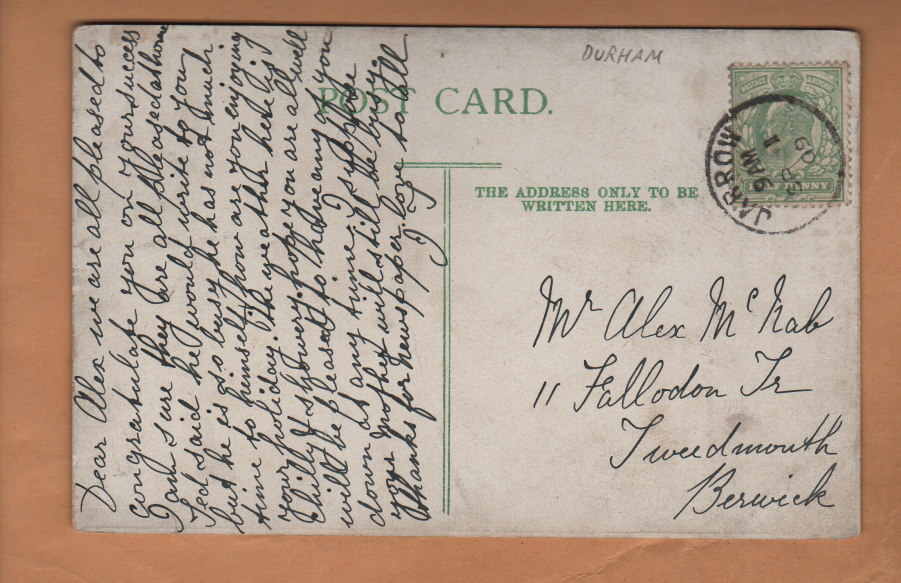 DURHAM
POST CARD.
THE ADDRESS ONLY TO BE
WRITTEN HERE.
JARROW
9 AM
1
09
HALFPENNY
Mr Alex McNab
11 Fallodon Tr
Tweedmouth
Berwick
Dear Alex we are all pleased to
congratulate you on your success
I am sure they are all pleased at home
Ted said he would write to you
but he is so busy he has not much
time to himself how are you enjoying
your holiday. The weather here is
chilly & showery. hope you are all well
will be pleased to have any of you
down at any time. I suppose
your mother will still be busy.
thanks for newspaper, love to all
J